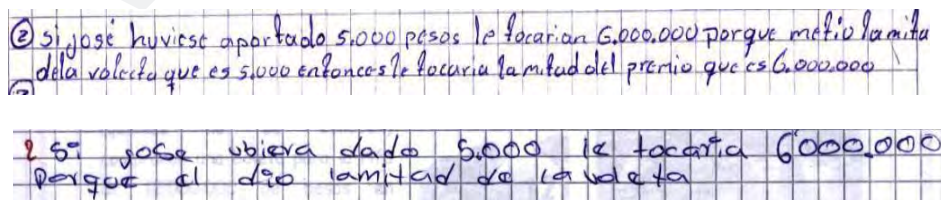 ② si josé huviese aportado 5.000 pesos le tocarian 6.000.000 porque metio la mita
dela voleta que es 5.000 entonces le tocaria la mitad del premio que es 6.000.000
2 Si jose ubiera dado 5.000 le tocaría 6000.000
Porque el dio lamitad de la voleta